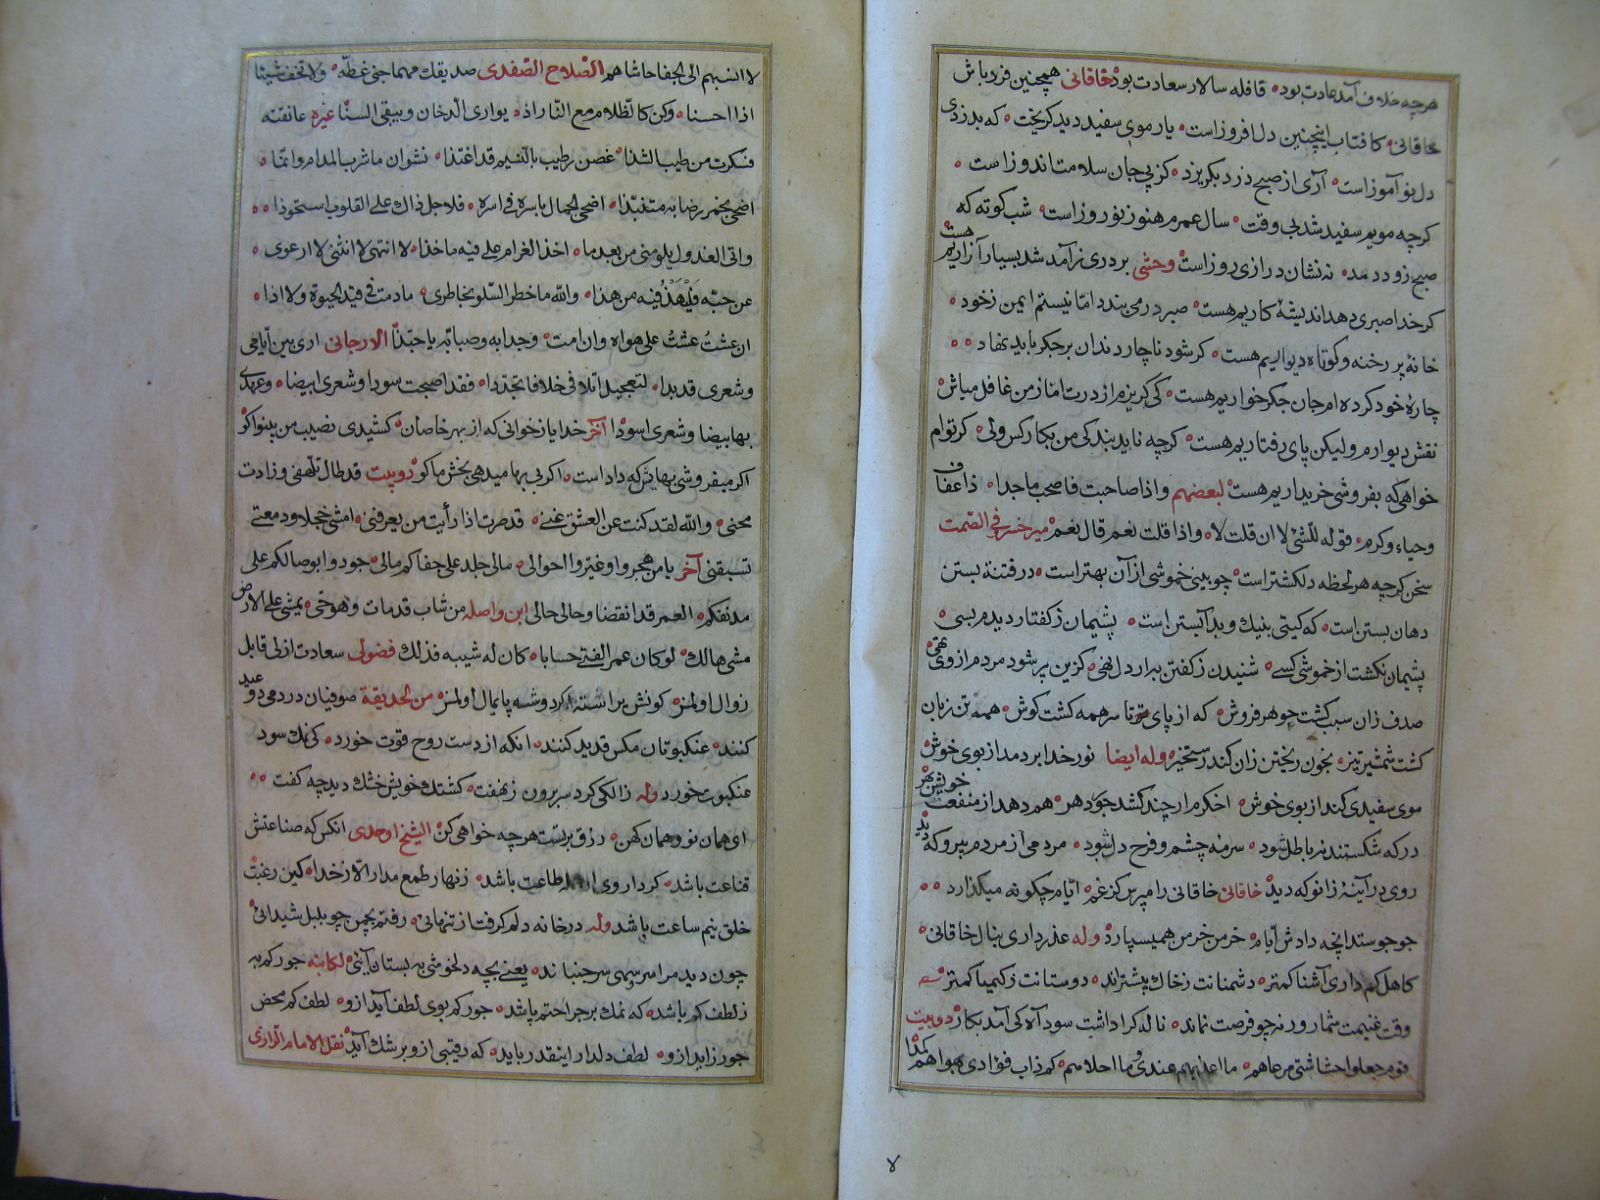 هرچه خلاف آمد عادت بود قافله سالار سعادت بود خاقانی همچنین فرد باش
خاقانی کافتاب اینچنین دل افروز است یار موی سفید دید کریخت که بدزدی
دل نو آموز است آری از صبح دزد بکریزد کز پی جان سلامت اندوز است
کرچه مویم سفید شد بی وقت سال عمرم هنوز نوروز است شب کوته که
صبح زود دمد نه نشان درازی روز است وحشی بر دری ز آمد شد بسیار آزاریم هست
کر خدا صبری دهد اندیشهٔ کاریم هست صبر در می بندد اما نیستم ایمن زخود
خانهٔ پر رخنه و کوتاه دیواریم هست کر شود ناچار دندان بر جکر باید نهاد
چارهٔ خود کرده ام جان جکر خواریم هست کی کریزم از درت اما ز من غافل مباش
نقش دیوارم ولیکن پای رفتاریم هست کرچه ناید بندکی من بکار کس ولی کر توام
خواهی که بفروشی خریداریم هست لبعضهم واذا صاحبت فاصحب ماجدا ذا عفاف
وحیاء وکرم قوله للشئ لا ان قلت لا واذا قلت نعم قال نعم میر خسرو فی الصمت
سخن کرچه هر لحظه دلکشتر است چو بینی خموشی از آن بهتر است در فتنه بستن
دهان بستن است که کیتی بنیک و بد آبستن است پشیمان ز کفتار دیدم بسی
پشیمان نکشت از خموشی کسی شنیدن ز کفتن به ار دل نهی کزین پر شود مردم از وی تهی
صدف زان سبب کشت جوهر فروش که از پای تا سر همه کشت کوش همه تن زبان
کشت شمشیر تیز بخون ریختن زان کند رستخیز وله ایضا نور خدا بردمد از بوی خوش
موی سفیدی کند از بوی خوش
در که شکستند نه باطل شود سرمه چشم و فرح دل شود مردمی از مردم بیرو که دید
روی در آینهٔ زانو که دید خاقانی خاقانی را مپرس کز غم ایام چکونه میکذارد
جو جو ستد آنچه دادش ایام خرمن خرمن همیسپارد وله عذر داری بنال خاقانی
کاهل کم داری آشنا کمتر دشمنانت ز خاک بیشترند دوستانت ز کیمیا کمتر
وقت غنیمت شمار ورنه چو فرصت نماند ناله کرا داشت سود آه کی آمد بکار دوبیت
قوم جعلوا حشاشتی مرعاهم ما اعذبهم عندی وما احلاهم کم ذاب فؤادی بهواهم کمدا
لا انسبهم الی الجفا حاشاهم الصلاح الصفدی صدیقك مهما جنی غطه ولا تخف شیئا
اذا احسنا وکن کالظلام مع النار اذ یواری الدخان ویبقی السنا غیره عانقته
فسکرت من طیب الشذا غصن رطیب بالنسیم قد اغتذا نشوان ما شرب المدام وانما
اضحی بخمر رضابه متنبذا اضحی الجمال باسره فی اسره فلاجل ذاك علی القلوب استحوذا
واتی العذول یلومنی من بعد ما اخذ الغرام علی فیه ماخذا لا انتهی لا انثنی لا ارعوی
عن حبه فلیهذ فیه من هذا والله ما خطر السلو بخاطری ما دمت فی قید الحیوة ولا اذا
ان عشت عشت علی هواه وان امت وجدا به وصبابة یا حبذا الارجانی اری بین ایامی
وشعری قد بدا لتعجیل اتلافی خلافا تجددا فقد اصبحت سودا وشعری ابیضا وعهدی
بها بیضا وشعری اسودا آخر خدایا ز خوانی که از بهر خاصان کشیدی نصیب من بینوا کو
اکر میفروشی بهایش که داد است اکر بی بها میدهی بخش ما کو دوبیت قد طال تلهفی وزادت
محنی والله لقد کنت عن العشق غنی قد صرت اذا رأیت من یعرفنی امشی خجلا ودمعتی
تسبقنی آخر یا من هجروا وغیروا احوالی مالی جلد علی جفاکم مالی جودوا بوصالکم علی
مدنفکم العمر قد انقضا وحالی حالی ابن واصله من شاب قد مات وهو حی یمشی علی الارض
مشی هالك لو کان عمر الفتی حسابا کان له شیبه فذلك فضولی سعادت ازلی قابل
زوال اولمز کونش یر اوستنه کر دوشسه پایمال اولمز من الحدیقة صوفیان در دمی دو عید
کنند عنکبوتان مکس قدید کنند انکه از دست روح قوت خورد کی نمك سود
عنکبوت خورد وله زالکی کرد سر برون ز نهفت کشتك خویش خشك دید چه کفت
ای همان نو و همان کهن رزق بر تست هرچه خواهی کن الشیخ اوحدی انکس که صناعتش
قناعت باشد کردار وی طاعت باشد زنهار طمع مدار الا ز خدا کین رغبت
خلق نیم ساعت باشد وله در خانه دلم کرفت از تنهائی رفتم بچمن چو بلبل شیدائی
چون دید مرا سر سهی سر جنباند یعنی بچه دلخوشی به بستان آئی لکاتبه جور کم به
ز لطف کم باشد که نمك بر جراحتم پاشد جور کم بوی لطف آید ازو لطف کم محض
جور زاید ازو لطف دلدار اینقدر باید که رقیبی ازو برشك آید نقل الامام الرازی